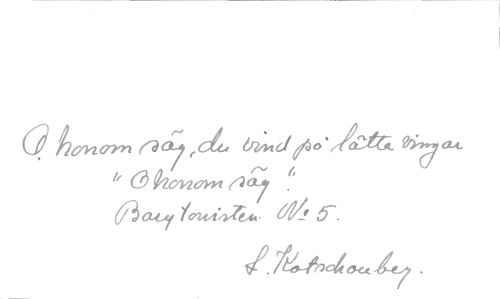 O, honom säg, du vind på lätta vingar
"O honom säg".
Barytonisten No 5.
L. Kotschoubey.